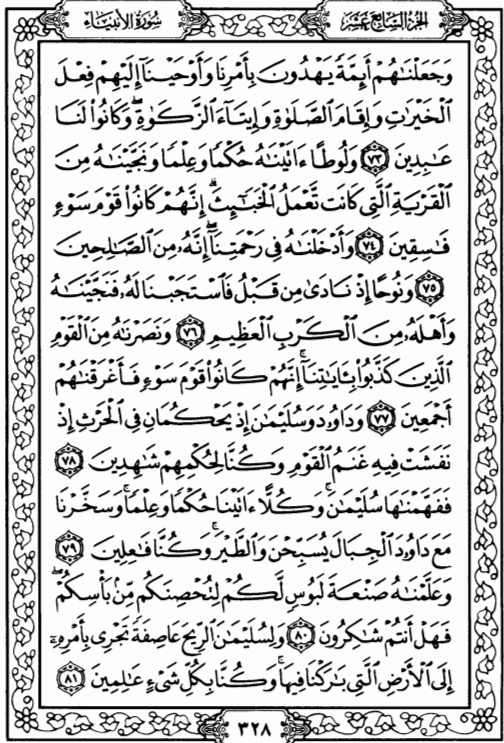 سُورَةُ الأَنبِيَاء
الجزء السابع عشر
وَجَعَلْنَٰهُمْ أَئِمَّةً يَهْدُونَ بِأَمْرِنَا وَأَوْحَيْنَآ إِلَيْهِمْ فِعْلَ
ٱلْخَيْرَٰتِ وَإِقَامَ ٱلصَّلَوٰةِ وَإِيتَآءَ ٱلزَّكَوٰةِ ۖ وَكَانُوا۟ لَنَا
عَٰبِدِينَ ٧٣ وَلُوطًا ءَاتَيْنَٰهُ حُكْمًا وَعِلْمًا وَنَجَّيْنَٰهُ مِنَ
ٱلْقَرْيَةِ ٱلَّتِى كَانَت تَّعْمَلُ ٱلْخَبَٰٓئِثَ ۗ إِنَّهُمْ كَانُوا۟ قَوْمَ سَوْءٍ
فَٰسِقِينَ ٧٤ وَأَدْخَلْنَٰهُ فِى رَحْمَتِنَآ ۖ إِنَّهُۥ مِنَ ٱلصَّٰلِحِينَ
٧٥ وَنُوحًا إِذْ نَادَىٰ مِن قَبْلُ فَٱسْتَجَبْنَا لَهُۥ فَنَجَّيْنَٰهُ
وَأَهْلَهُۥ مِنَ ٱلْكَرْبِ ٱلْعَظِيمِ ٧٦ وَنَصَرْنَٰهُ مِنَ ٱلْقَوْمِ
ٱلَّذِينَ كَذَّبُوا۟ بِـَٔايَٰتِنَآ ۚ إِنَّهُمْ كَانُوا۟ قَوْمَ سَوْءٍ فَأَغْرَقْنَٰهُمْ
أَجْمَعِينَ ٧٧ وَدَاوُۥدَ وَسُلَيْمَٰنَ إِذْ يَحْكُمَانِ فِى ٱلْحَرْثِ إِذْ
نَفَشَتْ فِيهِ غَنَمُ ٱلْقَوْمِ وَكُنَّا لِحُكْمِهِمْ شَٰهِدِينَ ٧٨
فَفَهَّمْنَٰهَا سُلَيْمَٰنَ ۚ وَكُلًّا ءَاتَيْنَا حُكْمًا وَعِلْمًا ۚ وَسَخَّرْنَا
مَعَ دَاوُۥدَ ٱلْجِبَالَ يُسَبِّحْنَ وَٱلطَّيْرَ ۚ وَكُنَّا فَٰعِلِينَ ٧٩
وَعَلَّمْنَٰهُ صَنْعَةَ لَبُوسٍ لَّكُمْ لِتُحْصِنَكُم مِّنۢ بَأْسِكُمْ ۖ
فَهَلْ أَنتُمْ شَٰكِرُونَ ٨٠ وَلِسُلَيْمَٰنَ ٱلرِّيحَ عَاصِفَةً تَجْرِى بِأَمْرِهِۦٓ
إِلَى ٱلْأَرْضِ ٱلَّتِى بَٰرَكْنَا فِيهَا ۚ وَكُنَّا بِكُلِّ شَىْءٍ عَٰلِمِينَ ٨١
٣٢٨